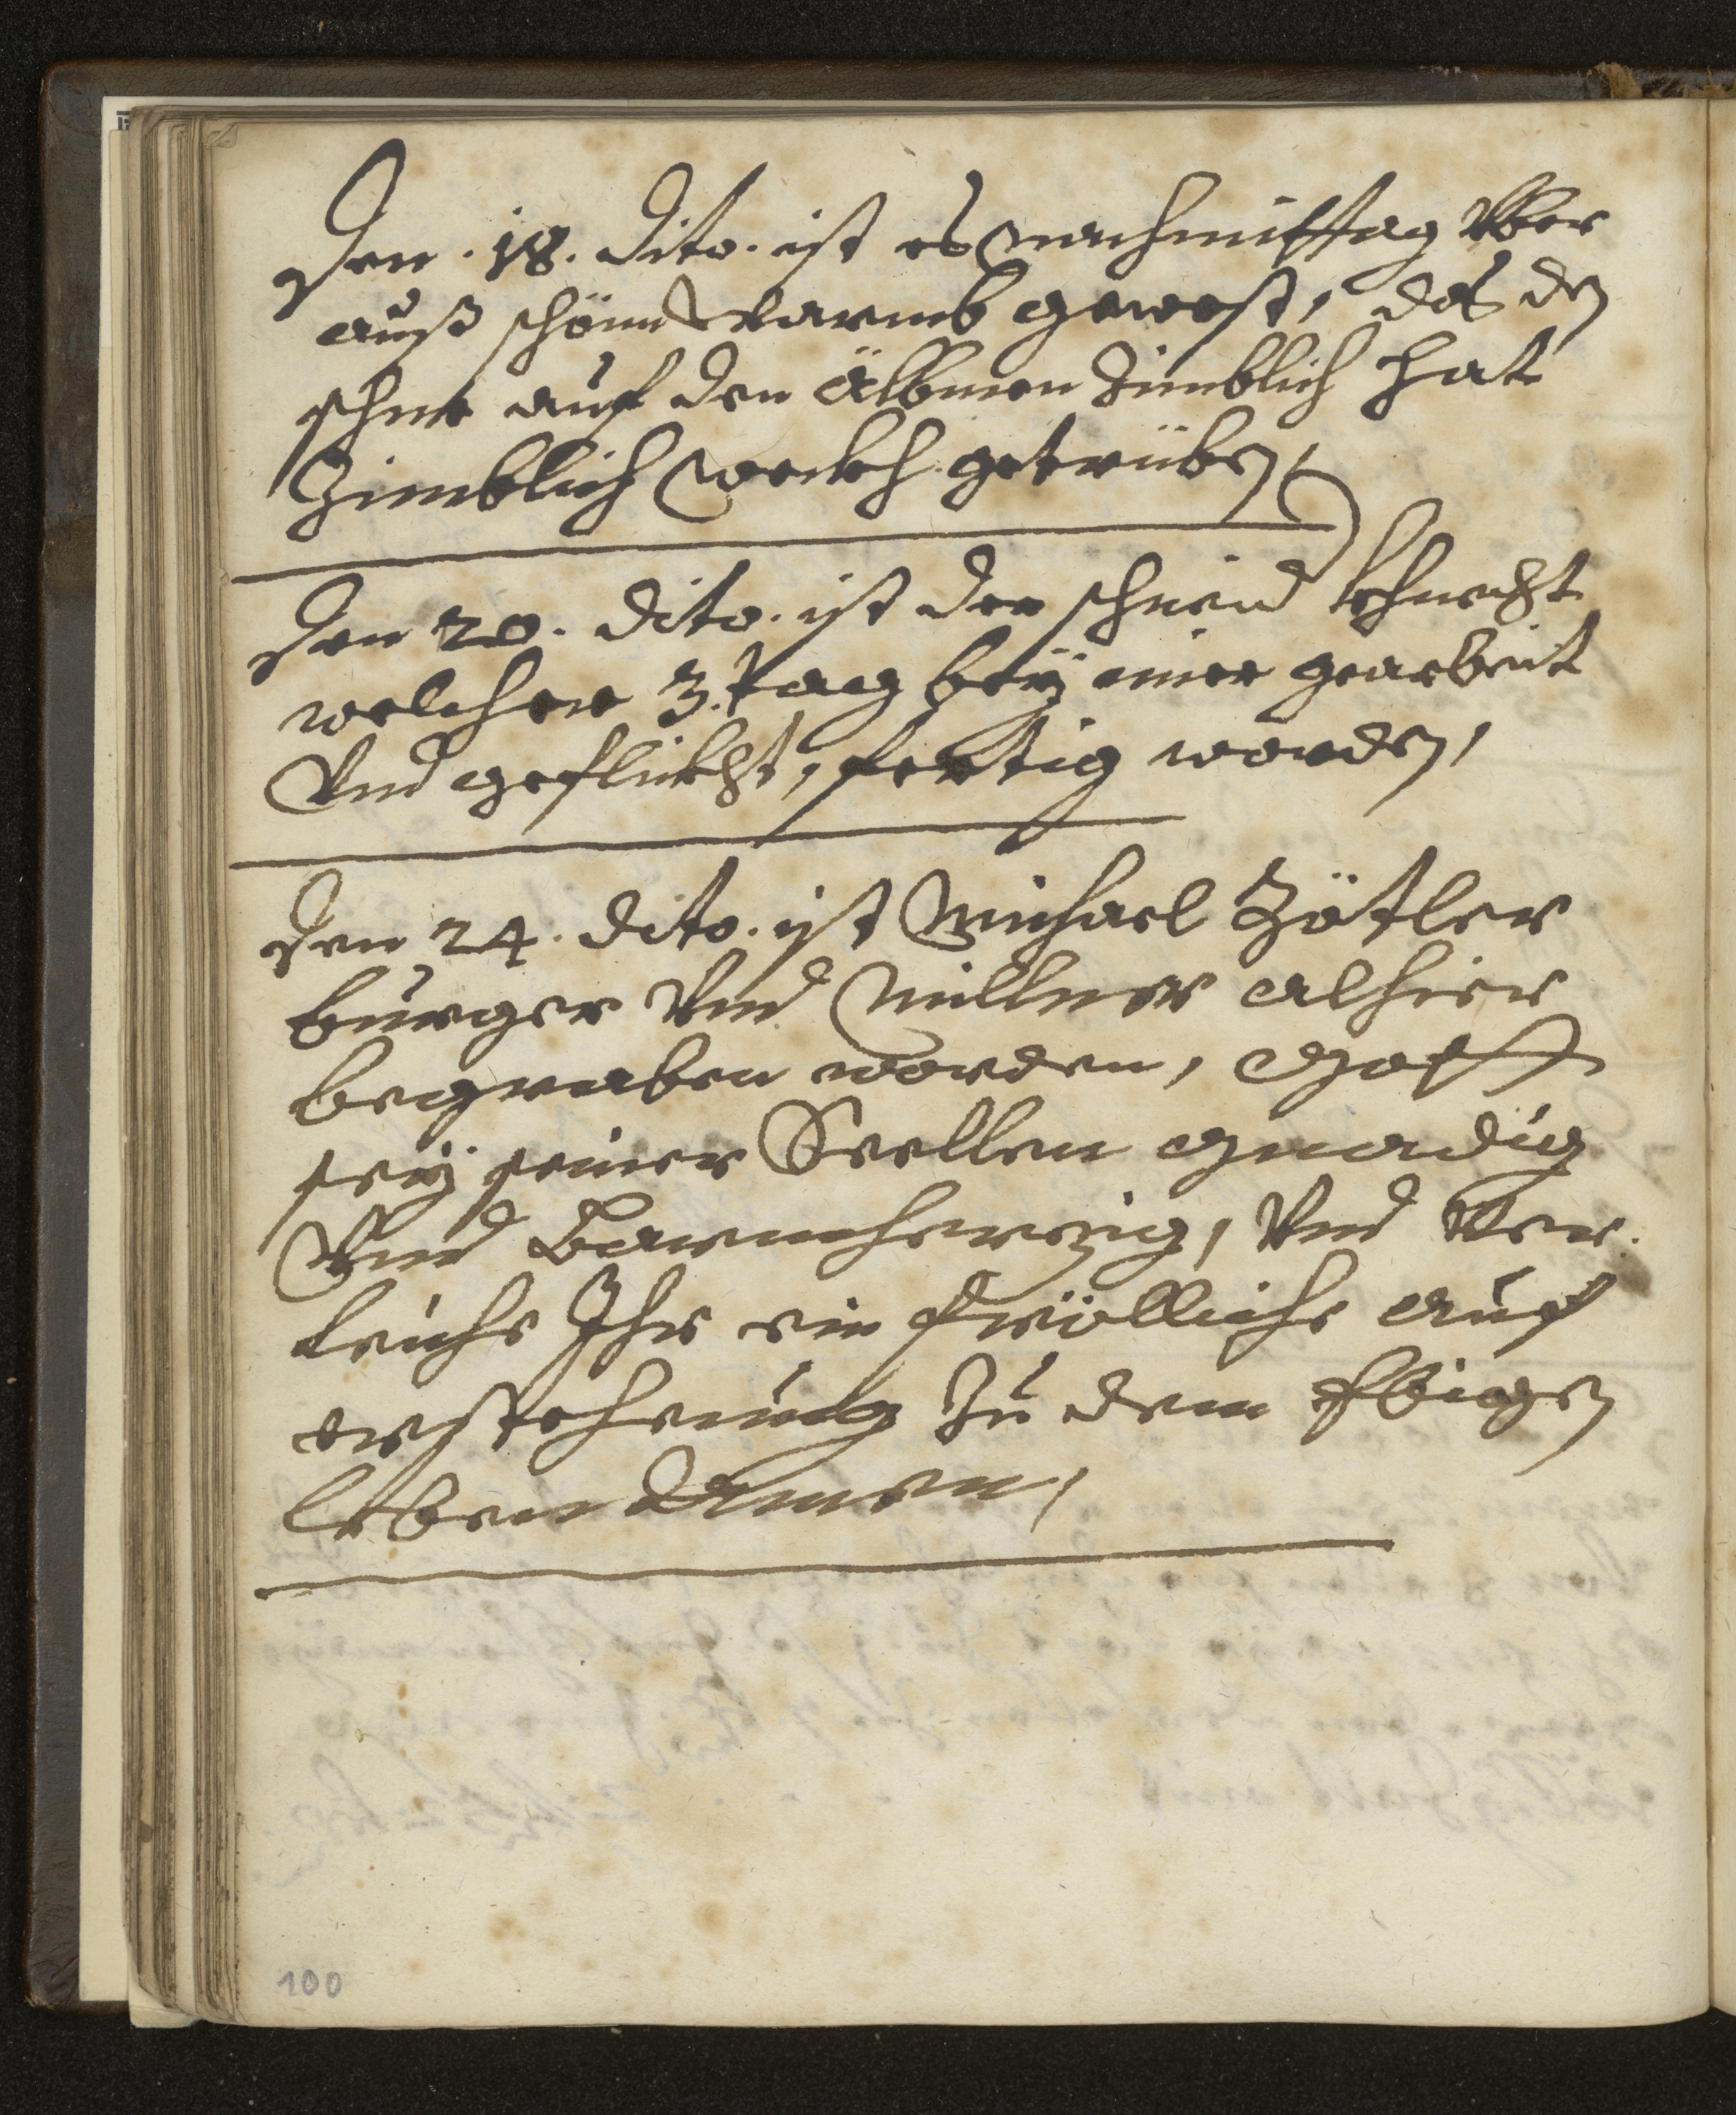 Den .18. dito. ist es nachmittag Vber
auß schön warmb gewest, das dz
schne auf den Älbmen Zimblich hat
Zimblich weckh getriben,
Den 20. dito. ist der schneid khnecht
welcher 3. tag beÿ mier gearbeit
Vnd geflickht, fertig worden,
Den 24. dito. ist Michael Zötler
burger Vnd Millner alhier
begraben worden, Gott
seÿ seiner Seellen gnadig
Vnd Barmherzig, Vnd Ver.
leiche Ihr ein fröilliche auf
erstehenung Zu dem Ebigen
leben Amen,
100